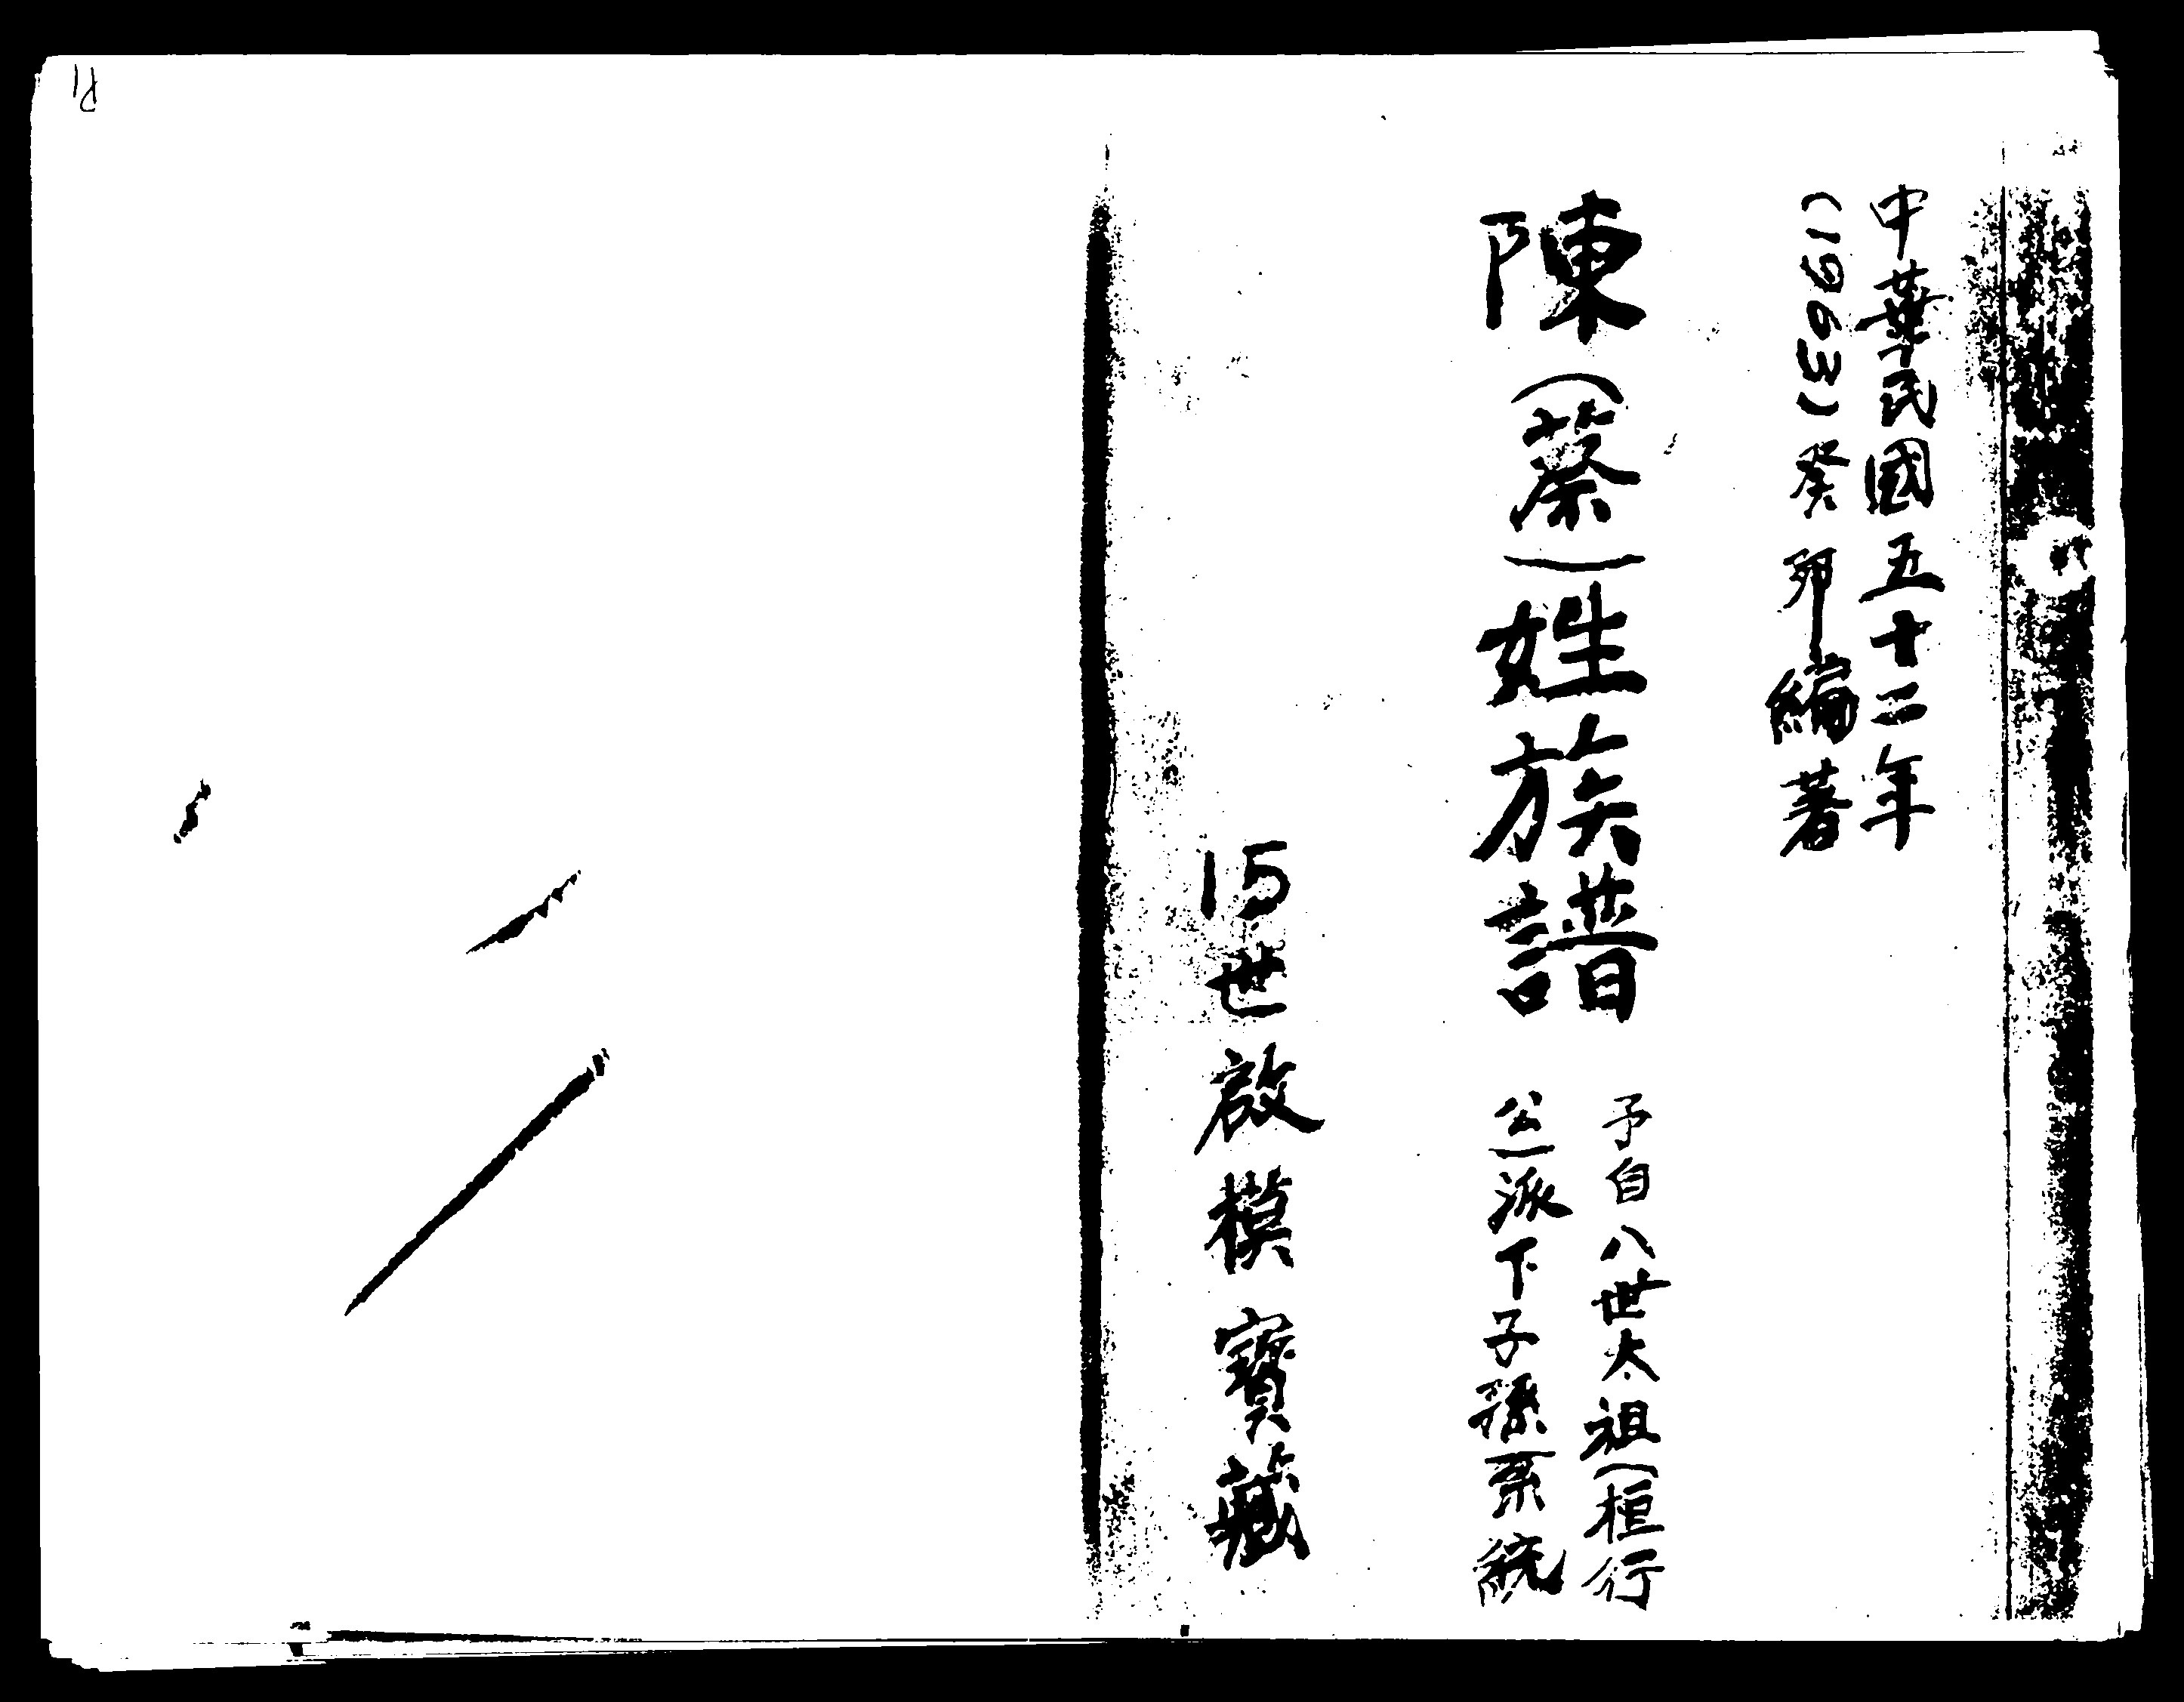 中華民國五十二年
(1963)癸卯編著
陳(蔡)姓族譜
予自八世太祖(桓行
公)派下子孫系統
15世啟模寶藏
P1